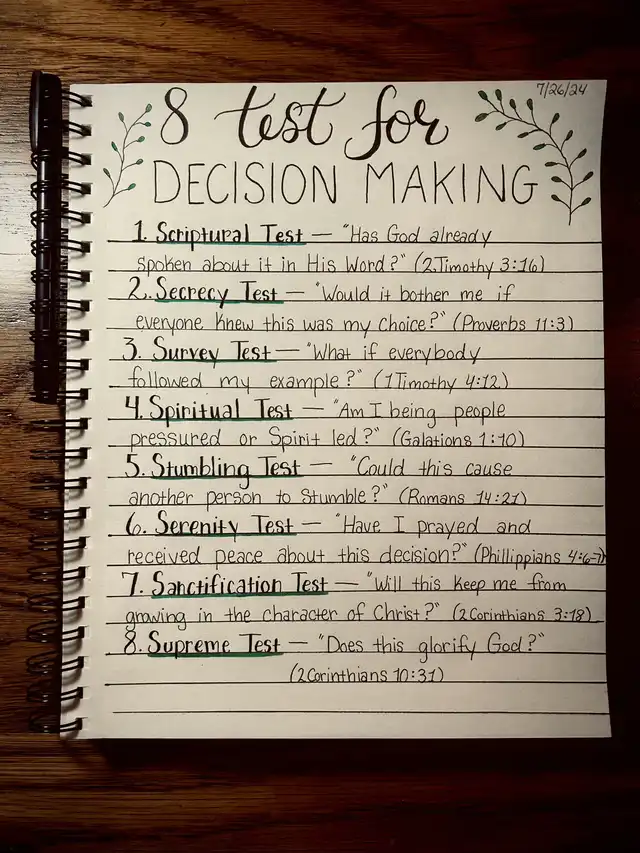 7/26/24
8 test for
DECISION MAKING
1. Scriptural Test — "Has God already
spoken about it in His Word?" (2 Timothy 3:16)
2. Secrecy Test — "Would it bother me if
everyone knew this was my choice?" (Proverbs 11:3)
3. Survey Test — "What if everybody
followed my example?" (1 Timothy 4:12)
4. Spiritual Test — "Am I being people
pressured or Spirit led?" (Galations 1:10)
5. Stumbling Test — "Could this cause
another person to stumble?" (Romans 14:21)
6. Serenity Test — "Have I prayed and
received peace about this decision?" (Phillippians 4:6-7)
7. Sanctification Test — "Will this keep me from
growing in the character of Christ?" (2 Corinthians 3:18)
8. Supreme Test — "Does this glorify God?"
(2 Corinthians 10:31)